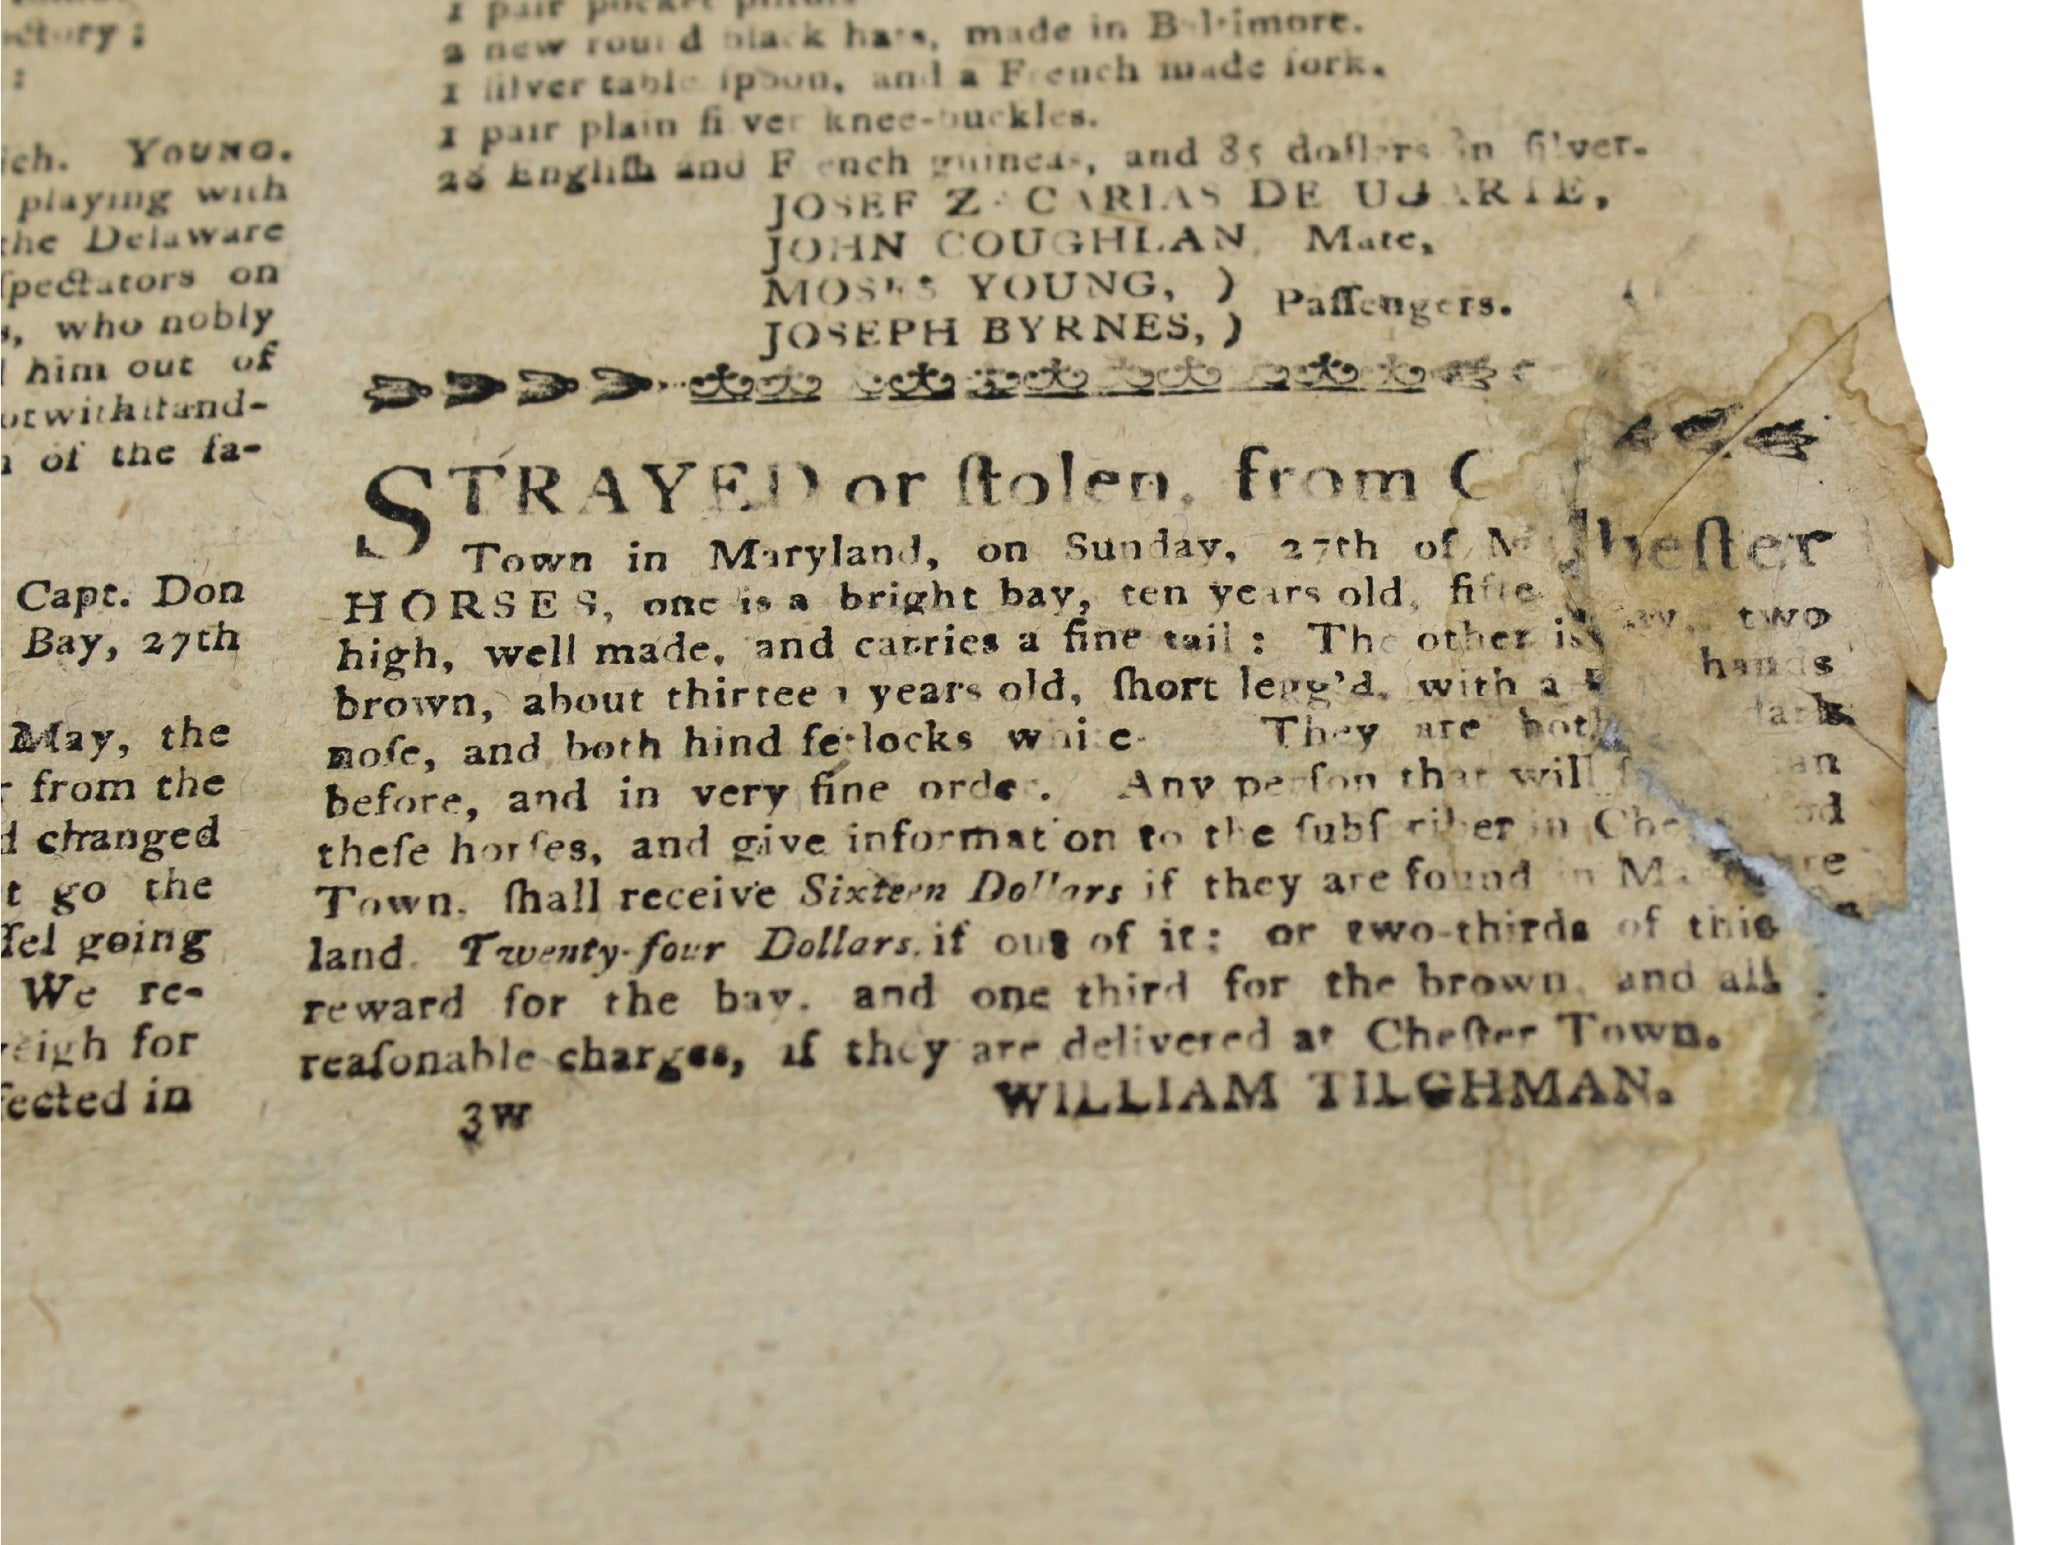 ctory;
:
ich. YOUNG.
playing with
the Delaware
ſpectators on
s, who nobly
him out of
otwithſtand-
of the fa-
Capt. Don
Bay, 27th
May, the
from the
changed
t go the
ſſel going
We re-
eigh for
fected in
1 pair pocket piſtols
2 new round black hats, made in Baltimore.
1 ſilver table ſpoon, and a French made fork.
1 pair plain ſilver knee-buckles.
28 Engliſh and French guineas, and 85 dollars in ſilver.
JOSEF ZACARIAS DE UBARTE,
JOHN COUGHLAN, Mate,
MOSES YOUNG, )
JOSEPH BYRNES, ) Paſſengers.
STRAYED or ſtolen, from Cheſter
Town in Maryland, on Sunday, 27th of May, two
HORSES, one is a bright bay, ten years old, fifteen hands
high, well made, and carries a fine tail: The other is dark
brown, about thirteen years old, ſhort legg'd, with a tan
noſe, and both hind fetlocks white. They are both ſhod
before, and in very fine order. Any perſon that will
theſe horſes, and give information to the ſubſcriber in Cheſter
Town, ſhall receive Sixteen Dollars if they are found in Mary-
land. Twenty-four Dollars, if out of it; or two-thirds of this
reward for the bay, and one third for the brown, and all
reaſonable charges, if they are delivered at Cheſter Town.
3w WILLIAM TILGHMAN.